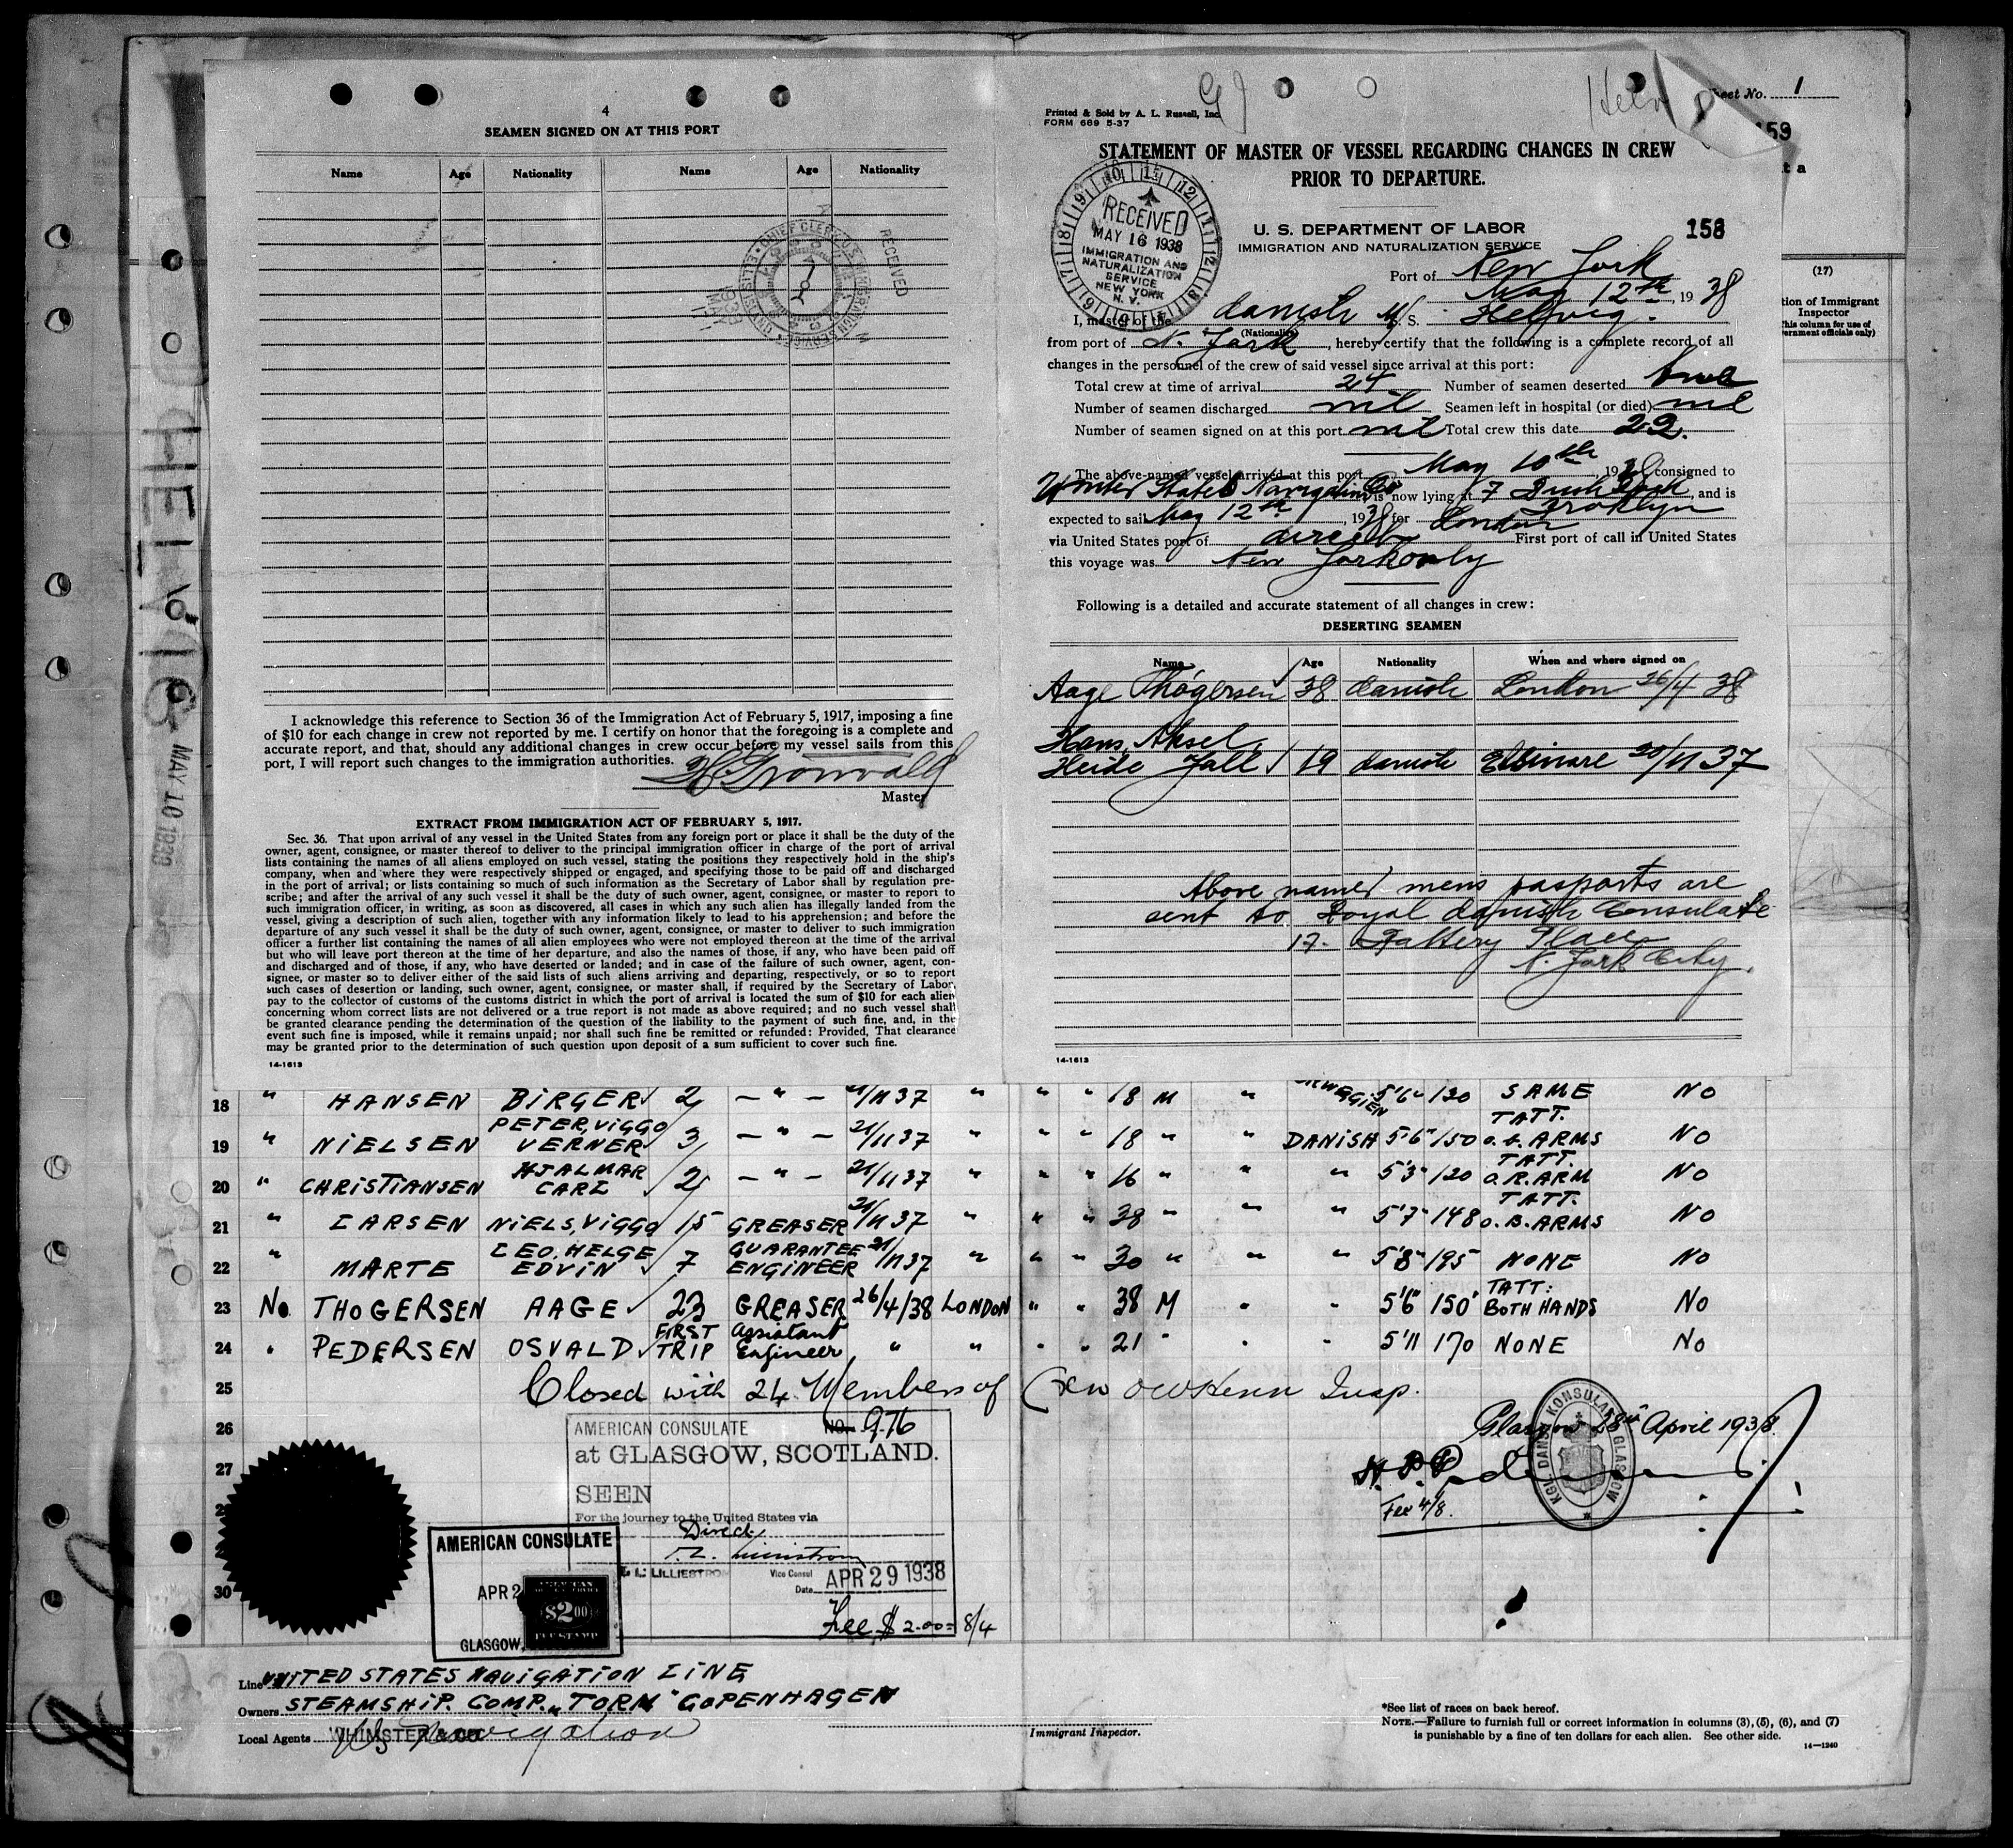 4
SEAMEN SIGNED ON AT THIS PORT
Name Age Nationality Name Age Nationality
CHIEF CLERK U.S. IMMIGRATION SERVICE
RECEIVED
I acknowledge this reference to Section 36 of the Immigration Act of February 5, 1917, imposing a fine
of $10 for each change in crew not reported by me. I certify on honor that the foregoing is a complete and
accurate report, and that, should any additional changes in crew occur before my vessel sails from this
port, I will report such changes to the immigration authorities.
H Gronvald
Master
EXTRACT FROM IMMIGRATION ACT OF FEBRUARY 5, 1917.
Sec. 36. That upon arrival of any vessel in the United States from any foreign port or place it shall be the duty of the
owner, agent, consignee, or master thereof to deliver to the principal immigration officer in charge of the port of arrival
lists containing the names of all aliens employed on such vessel, stating the positions they respectively hold in the ship's
company, when and where they were respectively shipped or engaged, and specifying those to be paid off and discharged
in the port of arrival; or lists containing so much of such information as the Secretary of Labor shall by regulation pre-
scribe; and after the arrival of any such vessel it shall be the duty of such owner, agent, consignee, or master to report to
such immigration officer, in writing, as soon as discovered, all cases in which any such alien has illegally landed from the
vessel, giving a description of such alien, together with any information likely to lead to his apprehension; and before the
departure of any such vessel it shall be the duty of such owner, agent, consignee, or master to deliver to such immigration
officer a further list containing the names of all alien employees who were not employed thereon at the time of the arrival
but who will leave port thereon at the time of her departure, and also the names of those, if any, who have been paid off
and discharged and of those, if any, who have deserted or landed; and in case of the failure of such owner, agent, con-
signee, or master so to deliver either of the said lists of such aliens arriving and departing, respectively, or so to report
such cases of desertion or landing, such owner, agent, consignee, or master shall, if required by the Secretary of Labor,
pay to the collector of customs of the customs district in which the port of arrival is located the sum of $10 for each alien
concerning whom correct lists are not delivered or a true report is not made as above required; and no such vessel shall
be granted clearance pending the determination of the question of the liability to the payment of such fine, and, in the
event such fine is imposed, while it remains unpaid; nor shall such fine be remitted or refunded: Provided, That clearance
may be granted prior to the determination of such question upon deposit of a sum sufficient to cover such fine.
14-1613
HELVIG
MAY 10 1938
Printed & Sold by A. L. Russell, Inc
FORM 689 5-37
Sheet No. 1
159
STATEMENT OF MASTER OF VESSEL REGARDING CHANGES IN CREW
PRIOR TO DEPARTURE.
RECEIVED
MAY 16 1938
IMMIGRATION AND
NATURALIZATION
SERVICE
NEW YORK
N. Y.
U. S. DEPARTMENT OF LABOR
IMMIGRATION AND NATURALIZATION SERVICE
158
Port of New York
May 12th, 1938
I, master of the danish M. S. Helvig.
(Nationality)
from port of N. York, hereby certify that the following is a complete record of all
changes in the personnel of the crew of said vessel since arrival at this port:
Total crew at time of arrival 24 Number of seamen deserted two
Number of seamen discharged nil Seamen left in hospital (or died) nil
Number of seamen signed on at this port nil Total crew this date 22.
The above-named vessel arrived at this port May 10th, 1938 consigned to
United States Navigation Co is now lying at 7 Dock, and is
Brooklyn
expected to sail May 12th, 1938 for London
via United States port of direct First port of call in United States
this voyage was New York only
Following is a detailed and accurate statement of all changes in crew:
DESERTING SEAMEN
Name Age Nationality When and where signed on
Aage Thøgersen 38 danish London 26/4 38
Hans, Aksel,
Heide Jall 19 danish Elsinore 20/11 37
Above named mens pasports are
sent to Royal danish Consulate
17. Battery Place
N. York City.
14-1613
(17)
tion of Immigrant
Inspector
This column for use of
ernment officials only)
18 " HANSEN BIRGER 2 - " - 21/11 37 " " " 18 M " NORWEGIEN 5'6" 130 SAME NO
19 " NIELSEN PETER, VIGGO VERNER 3 - " - 21/11 37 " " " 18 " " DANISH 5'6" 150 TATT. O.B. ARMS NO
20 " CHRISTIANSEN HJALMAR CARL 2 - " - 21/11 37 " " " 16 " " " 5'3" 120 TATT. O.R. ARM NO
21 " LARSEN NIELS, VIGGO 15 GREASER 21/11 37 " " " 38 " " " 5'7" 148 TATT. O.B. ARMS NO
22 " MARTE LEO, HELGE EDVIN 7 GUARANTEE ENGINEER 21/11 37 " " " 30 " " " 5'8" 195 NONE NO
23 No THOGERSEN AAGE 23 GREASER 26/4/38 LONDON " " 38 M " " 5'6" 150 TATT: BOTH HANDS No
24 " PEDERSEN OSVALD FIRST TRIP Assistant Engineer " " " " 21 " " " 5'11 170 NONE No
25 Closed with 24 Members of Crew Insp.
26
27
30
AMERICAN CONSULATE NO. 976
at GLASGOW, SCOTLAND.
SEEN
For the journey to the United States via
Direct
LILLIESTROM Vice Consul
Date APR 29 1938
Fee $ 2.00 = 8/4
AMERICAN CONSULATE
APR 2
$2.00
FEE STAMP
GLASGOW,
Glasgow 28th April 1938.
KGL. DANSK KONSULAT GLASGOW
Fee 4/8.
Line UNITED STATES NAVIGATION LINE
Owners STEAMSHIP. COMP. "TORM" COPENHAGEN
Local Agents WHIMSTER & CO US Navigation
Immigrant Inspector.
*See list of races on back hereof.
NOTE.—Failure to furnish full or correct information in columns (3), (5), (6), and (7)
is punishable by a fine of ten dollars for each alien. See other side.
14—1240